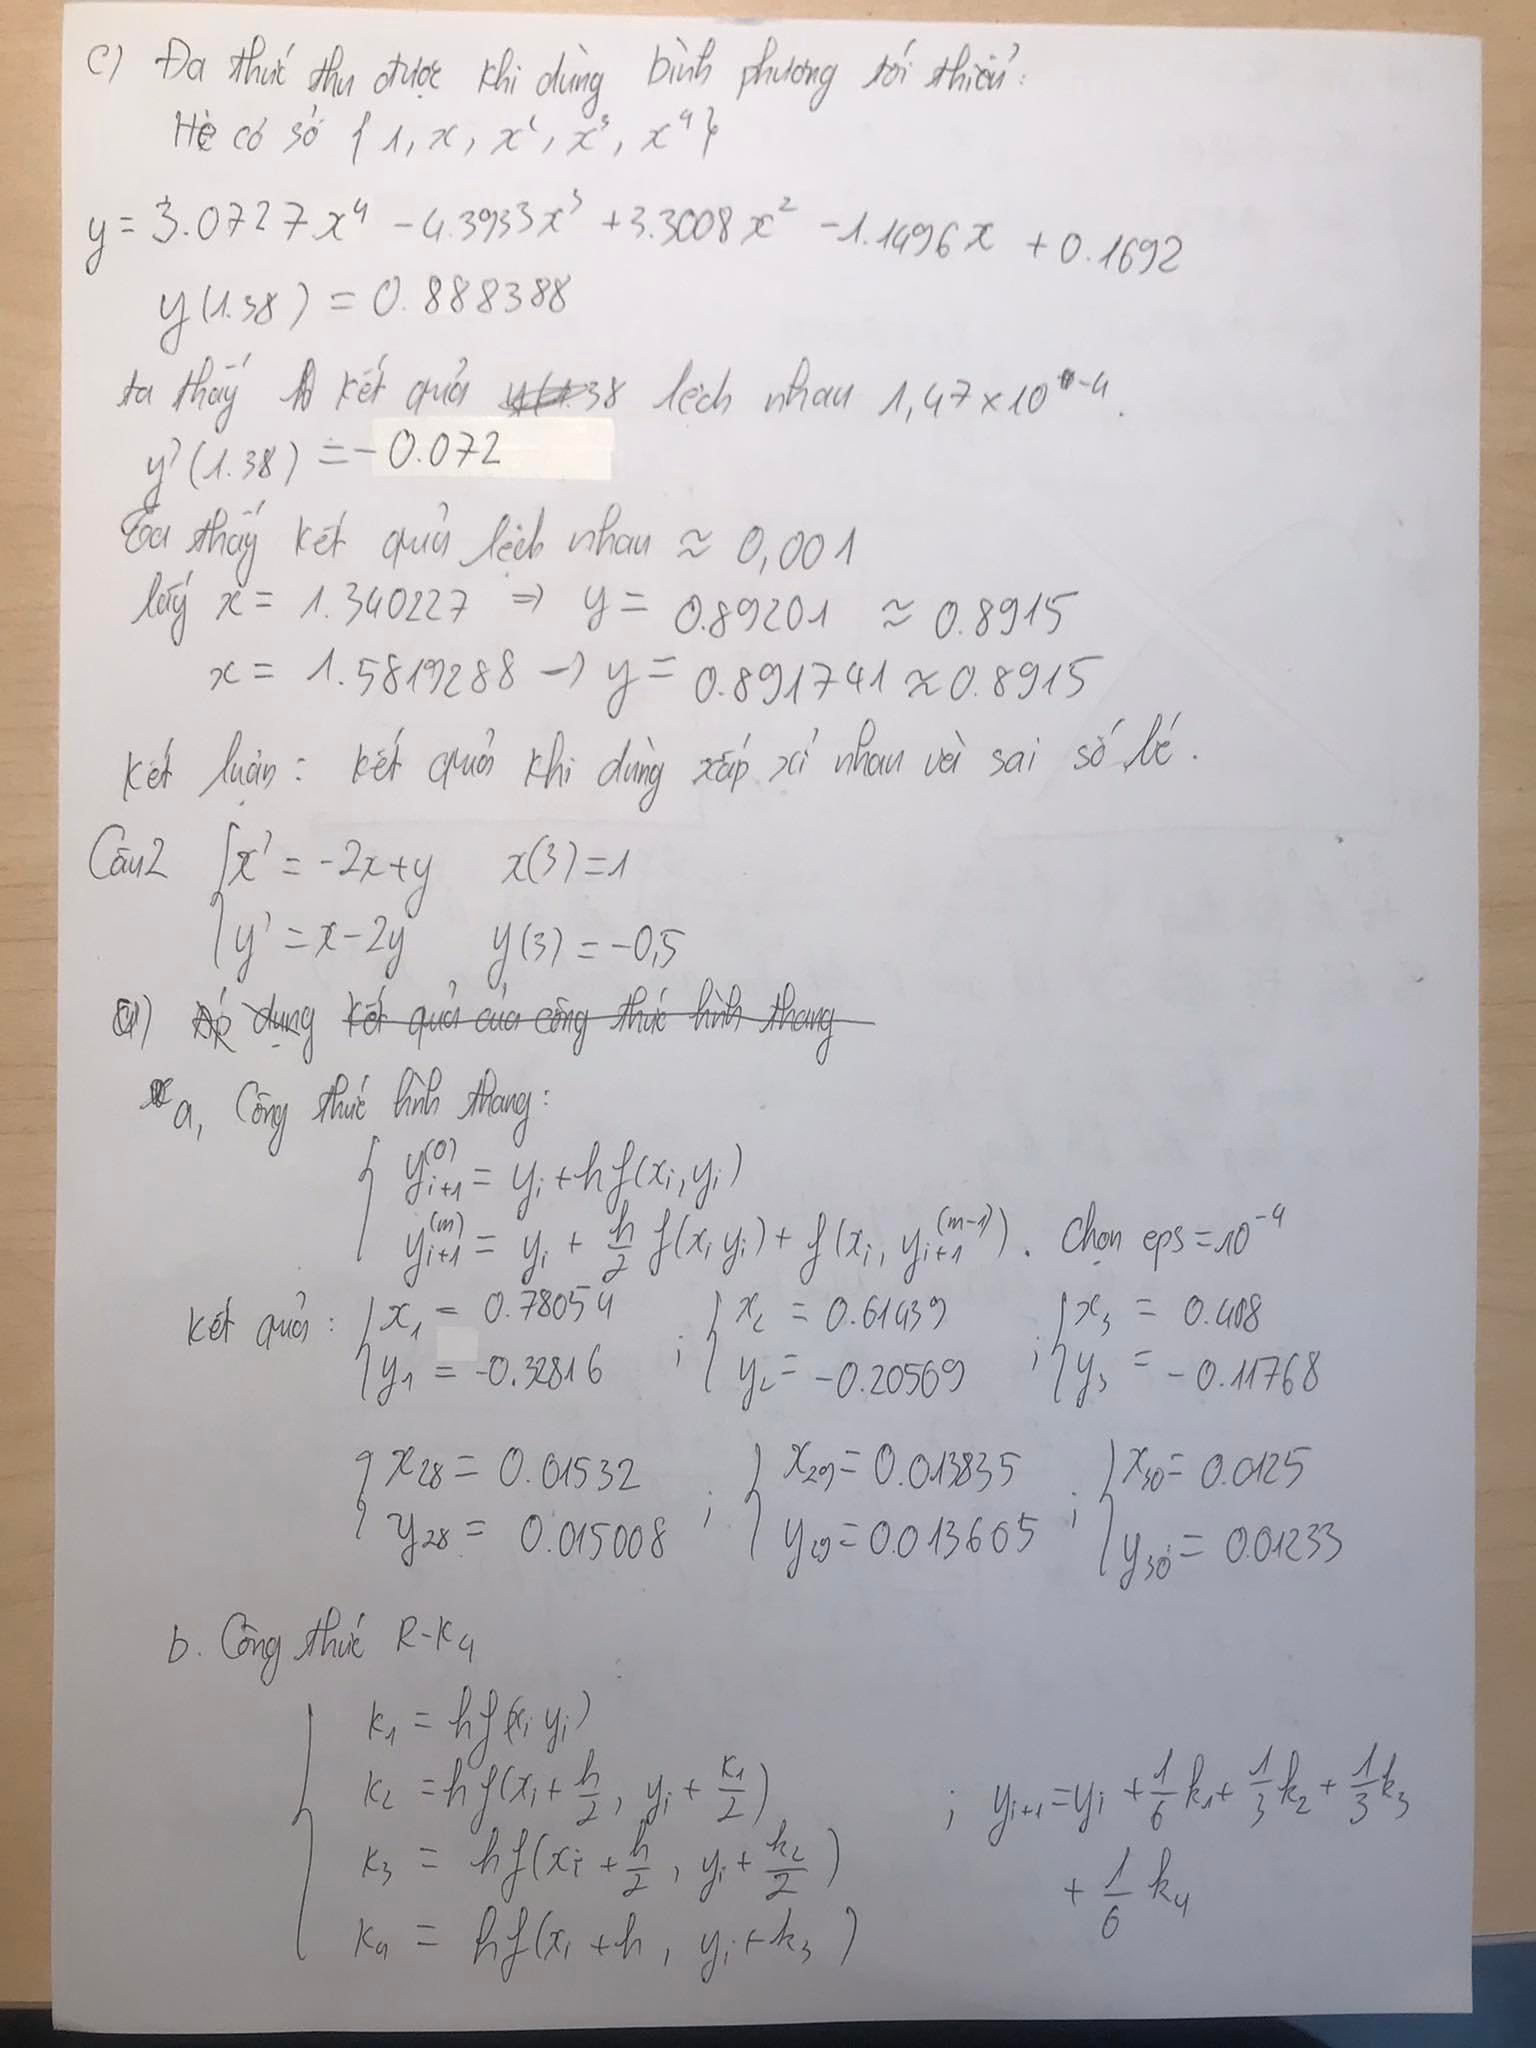 c) Đa thức thu được khi dùng bình phương tối thiểu:
Hệ cơ sở {1, x, x², x³, x⁴}
y = 3.0727x⁴ - 4.3933x³ + 3.3008x² - 1.1496x + 0.1692
y(1.38) = 0.888388
ta thấy kết quả lệch nhau 1,47×10⁻⁴.
y'(1.38) = -0.072
Ta thấy kết quả lệch nhau ≈ 0,001
lấy x = 1.340227 ⇒ y = 0.89201 ≈ 0.8915
x = 1.5819288 → y = 0.891741 ≈ 0.8915
Kết luận: kết quả khi dùng xấp xỉ nhau và sai số bé.
Câu 2 { x' = -2x+y x(3)=1
y' = x-2y y(3) = -0,5
a) Áp dụng kết quả của công thức hình thang
a, Công thức hình thang:
{ y_{i+1}^{(0)} = y_i + h f(x_i, y_i)
y_{i+1}^{(m)} = y_i + h/2 f(x_i y_i) + f(x_i, y_{i+1}^{(m-1)}). Chọn eps = 10⁻⁴
Kết quả: { x₁ = 0.78054 ; { x₂ = 0.61439 ; { x₃ = 0.488
y₁ = -0.32816 y₂ = -0.20569 y₃ = -0.11768
{ x₂₈ = 0.01532 ; { x₂₉ = 0.013835 ; { x₃₀ = 0.0125
y₂₈ = 0.015008 y₂₉ = 0.013605 y₃₀ = 0.01233
b. Công thức R-K₄
{ k₁ = h f(x_i y_i)
k₂ = h f(x_i + h/2, y_i + k₁/2) ; y_{i+1} = y_i + 1/6 k₁ + 1/3 k₂ + 1/3 k₃
k₃ = h f(x_i + h/2, y_i + k₂/2) + 1/6 k₄
k₄ = h f(x_i + h, y_i + k₃)